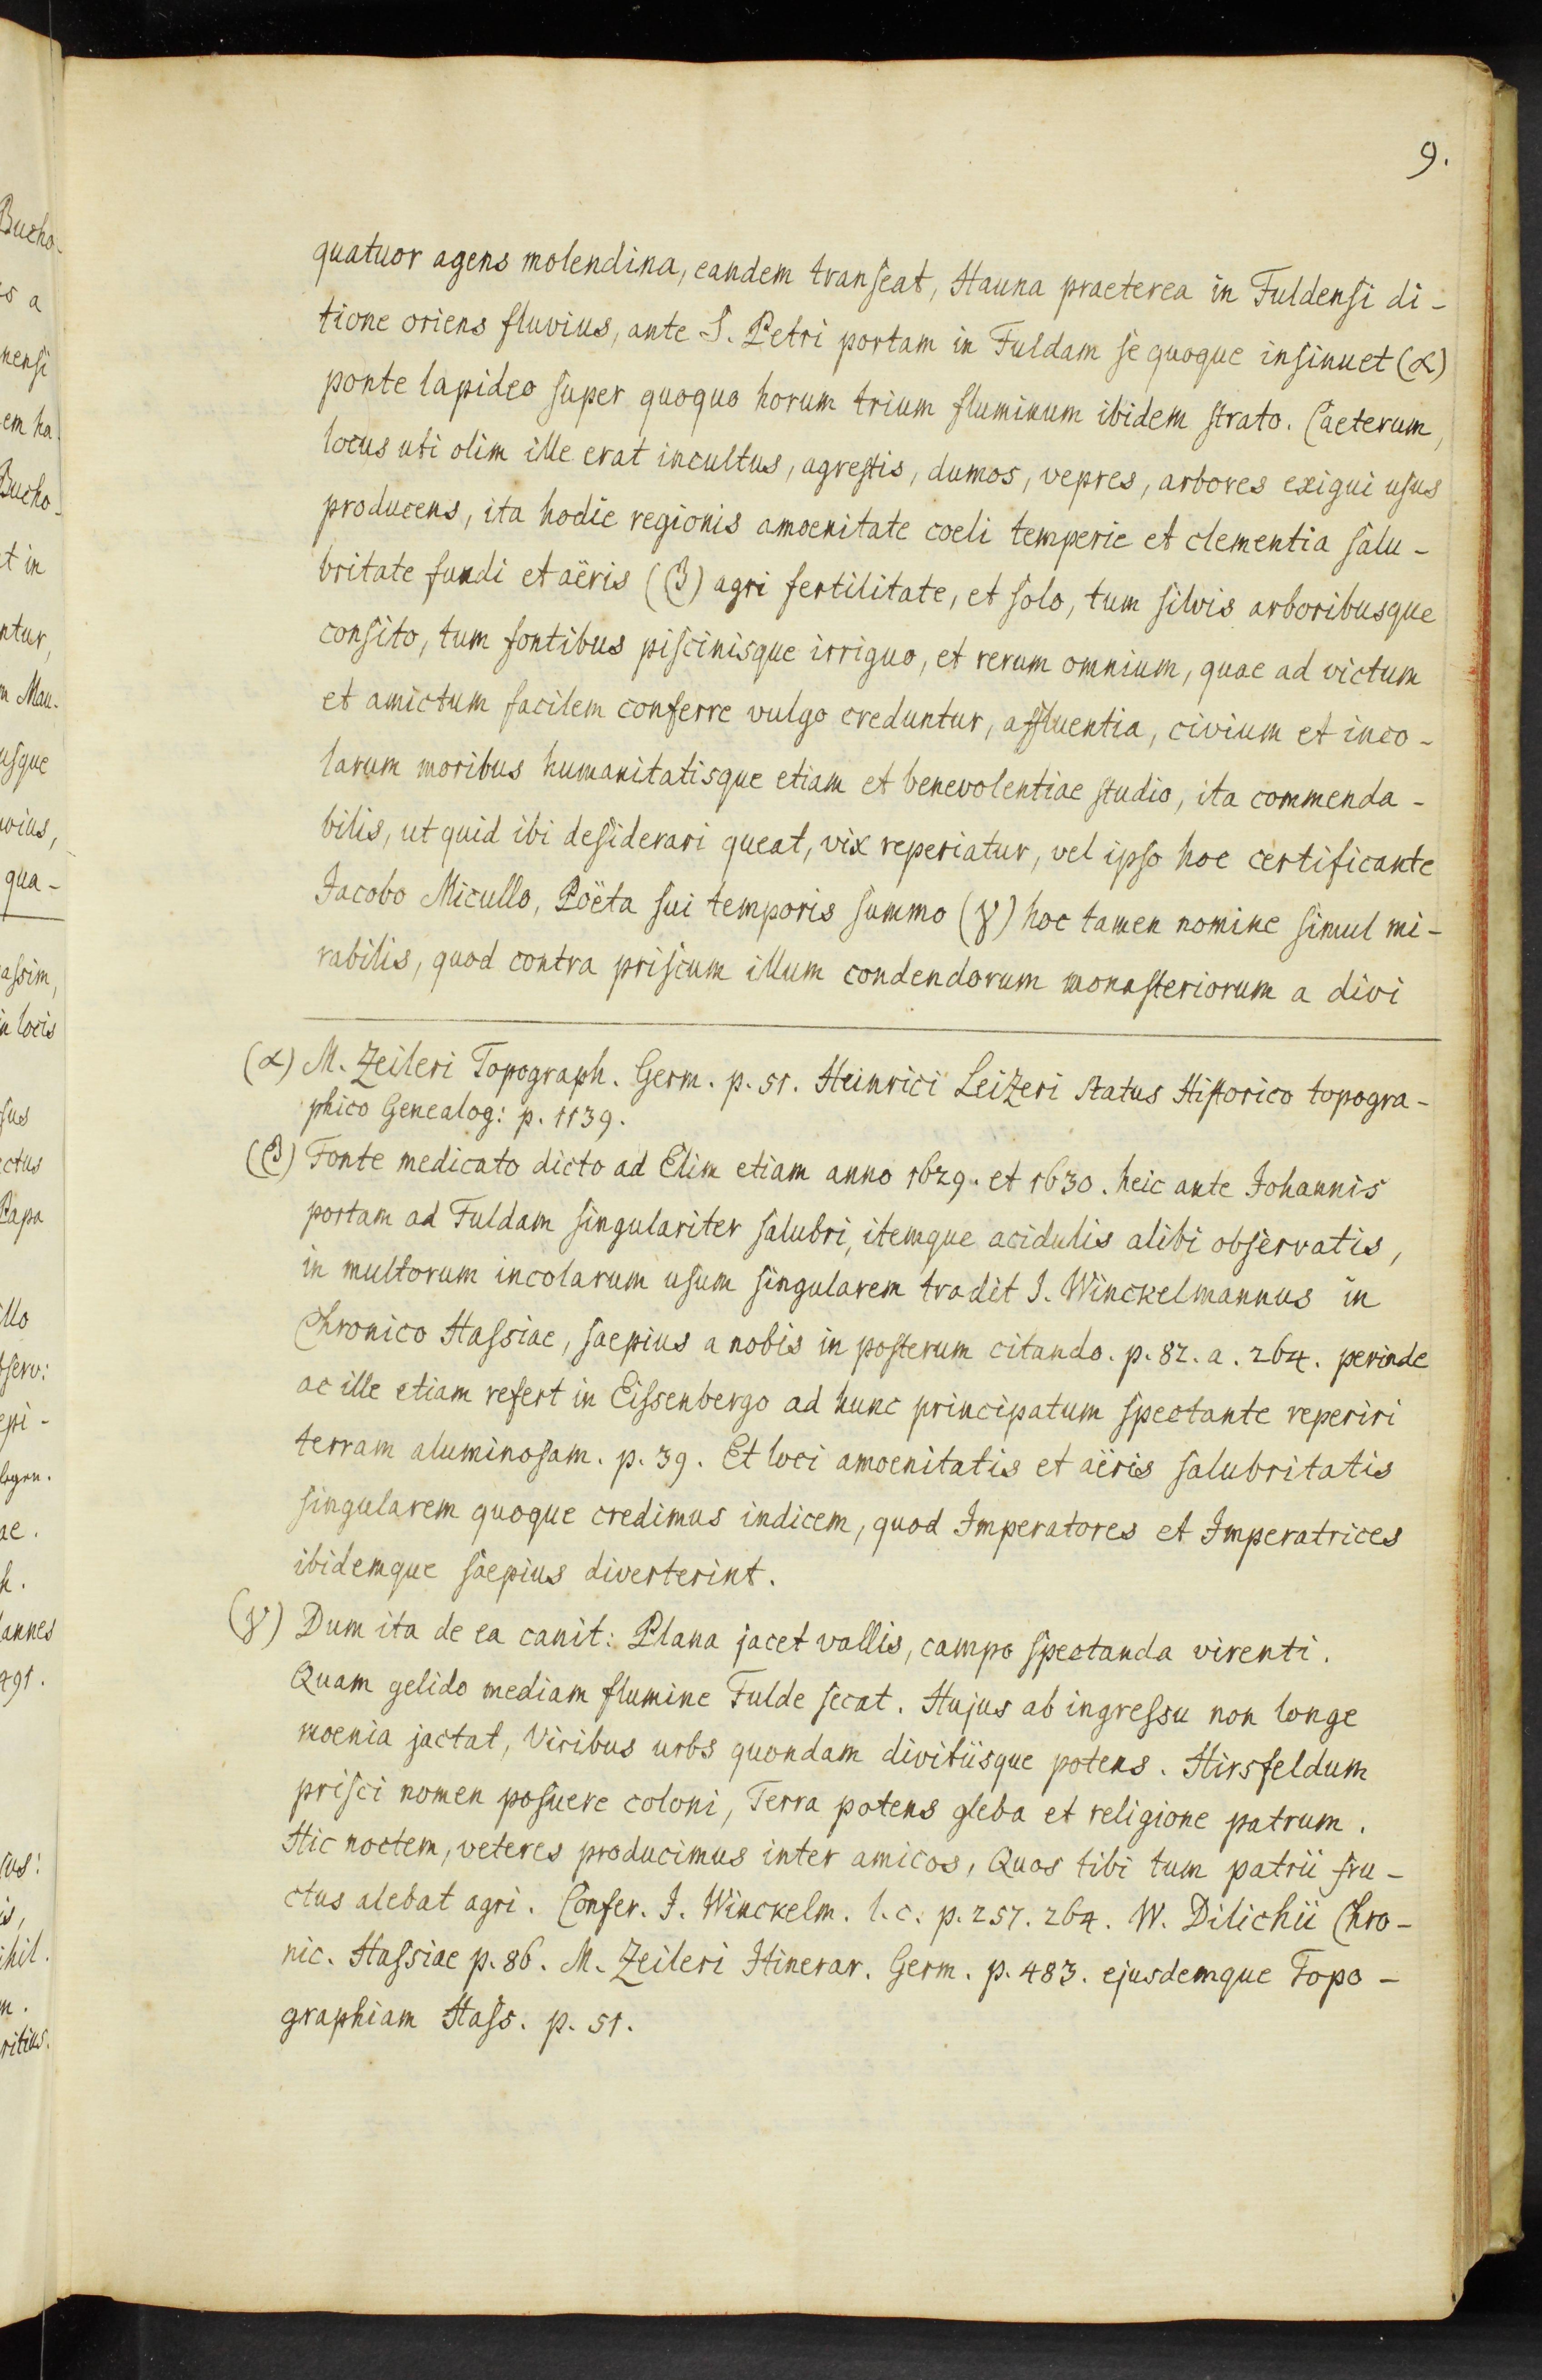 9.
quatuor agens molendina, eandem transeat, Hauna praeterea in Fuldensi di-
tione oriens fluvius, ante S. Petri portam in Fuldam se quoque insinuet (α)
ponte lapideo super quoquo horum trium fluminum ibidem strato. Caeterum,
locus uti olim ille erat incultus, agrestis, dumos, vepres, arbores exigui usus
producens, ita hodie regionis amoenitate coeli temperie et clementia salu-
britate fundi et aëris (β) agri fertilitate, et solo, tum silvis arboribusque
consito, tum fontibus piscinisque irriguo, et rerum omnium, quae ad victum
et amictum facilem conferre vulgo creduntur, affluentia, civium et inco-
larum moribus humanitatisque etiam et benevolentiae studio, ita commenda-
bilis, ut quid ibi desiderari queat, vix reperiatur, vel ipso hoc certificante
Jacobo Micullo, Poëta sui temporis summo (γ) hoc tamen nomine simul mi-
rabilis, quod contra priscum illum condendorum monasteriorum a divi
(α) M. Zeileri Topograph. Germ. p. 51. Heinrici Leizeri Status Historico topogra-
phico Genealog: p. 1139.
(β) Fonte medicato dicto ad Elim etiam anno 1629. et 1630. heic ante Johannis
portam ad Fuldam singulariter salubri, itemque acidulis alibi observatis,
in multorum incolarum usum singularem tradit J. Winckelmannus in
Chronico Hassiae, saepius a nobis in posterum citando. p. 82. a. 264. perinde
ac ille etiam refert in Eissenbergo ad hunc principatum spectante reperiri
terram aluminosam. p. 39. Et loci amoenitatis et aëris salubritatis
singularem quoque credimus indicem, quod Imperatores et Imperatrices
ibidemque saepius diverterint.
(γ) Dum ita de ea canit: Plana jacet vallis, campo spectanda virenti.
Quam gelido mediam flumine Fulde secat. Hujus ab ingressu non longe
moenia jactat, Viribus urbs quondam divitiisque potens. Hirsfeldum
prisci nomen posuere coloni, Terra potens gleba et religione patrum.
Hic noctem, veteres producimus inter amicos, Quos tibi tum patrii fru-
ctus alebat agri. Confer. J. Winckelm. l. c. p. 257. 264. W. Dilichii Chro-
nic. Hassiae p. 86. M. Zeileri Itinerar. Germ. p. 483. ejusdemque Topo-
graphiam Hass. p. 51.